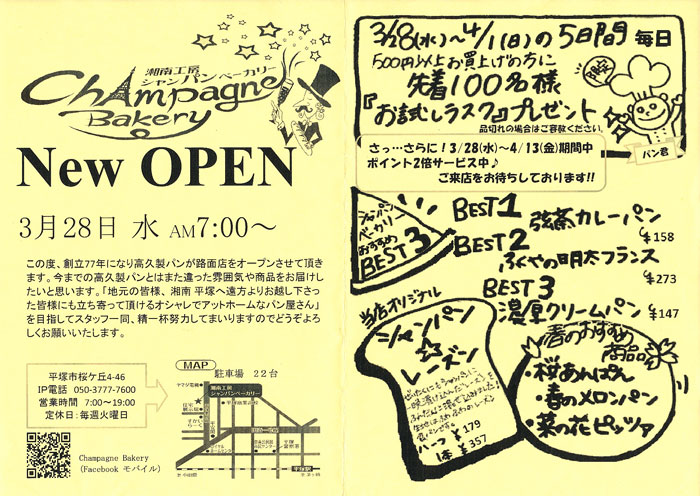 湘南工房
シャンパンベーカリー
Champagne
Bakery
New OPEN
3月28日 水 AM7:00～
この度、創立77年になり高久製パンが路面店をオープンさせて頂き
ます。今までの高久製パンとはまた違った雰囲気や商品をお届けし
たいと思います。「地元の皆様、湘南 平塚へ遠方よりお越し下さっ
た皆様にも立ち寄って頂けるオシャレでアットホームなパン屋さん」
を目指してスタッフ一同、精一杯努力してまいりますのでどうぞよろ
しくお願いいたします。
平塚市桜ケ丘4-46
IP電話 050-3777-7600
営業時間 7:00～19:00
定休日：毎週火曜日
Champagne Bakery
(Facebook モバイル)
MAP
駐車場 22台
湘南工房
シャンパンベーカリー
3/28(水)～4/1(日)の5日間 毎日
500円以上お買上げの方に
先着100名様
限定
『お試しラスク』プレゼント
品切れの場合はご容赦ください。
パン君
さっ…さらに！3/28(水)～4/13(金)期間中
ポイント2倍サービス中♪
ご来店をお待ちしております!!
シャンパン
ベーカリー
おすすめ
BEST3
BEST1
弦斎カレーパン
¥158
BEST2
ふくやの明太フランス
¥273
BEST3
濃厚クリームパン
¥147
当店オリジナル
シャンパン
☆
レーズン
ハーフ ¥179
1本 ¥357
春のおすすめ
商品
・桜あんぱん
・春のメロンパン
・菜の花ピッツァ